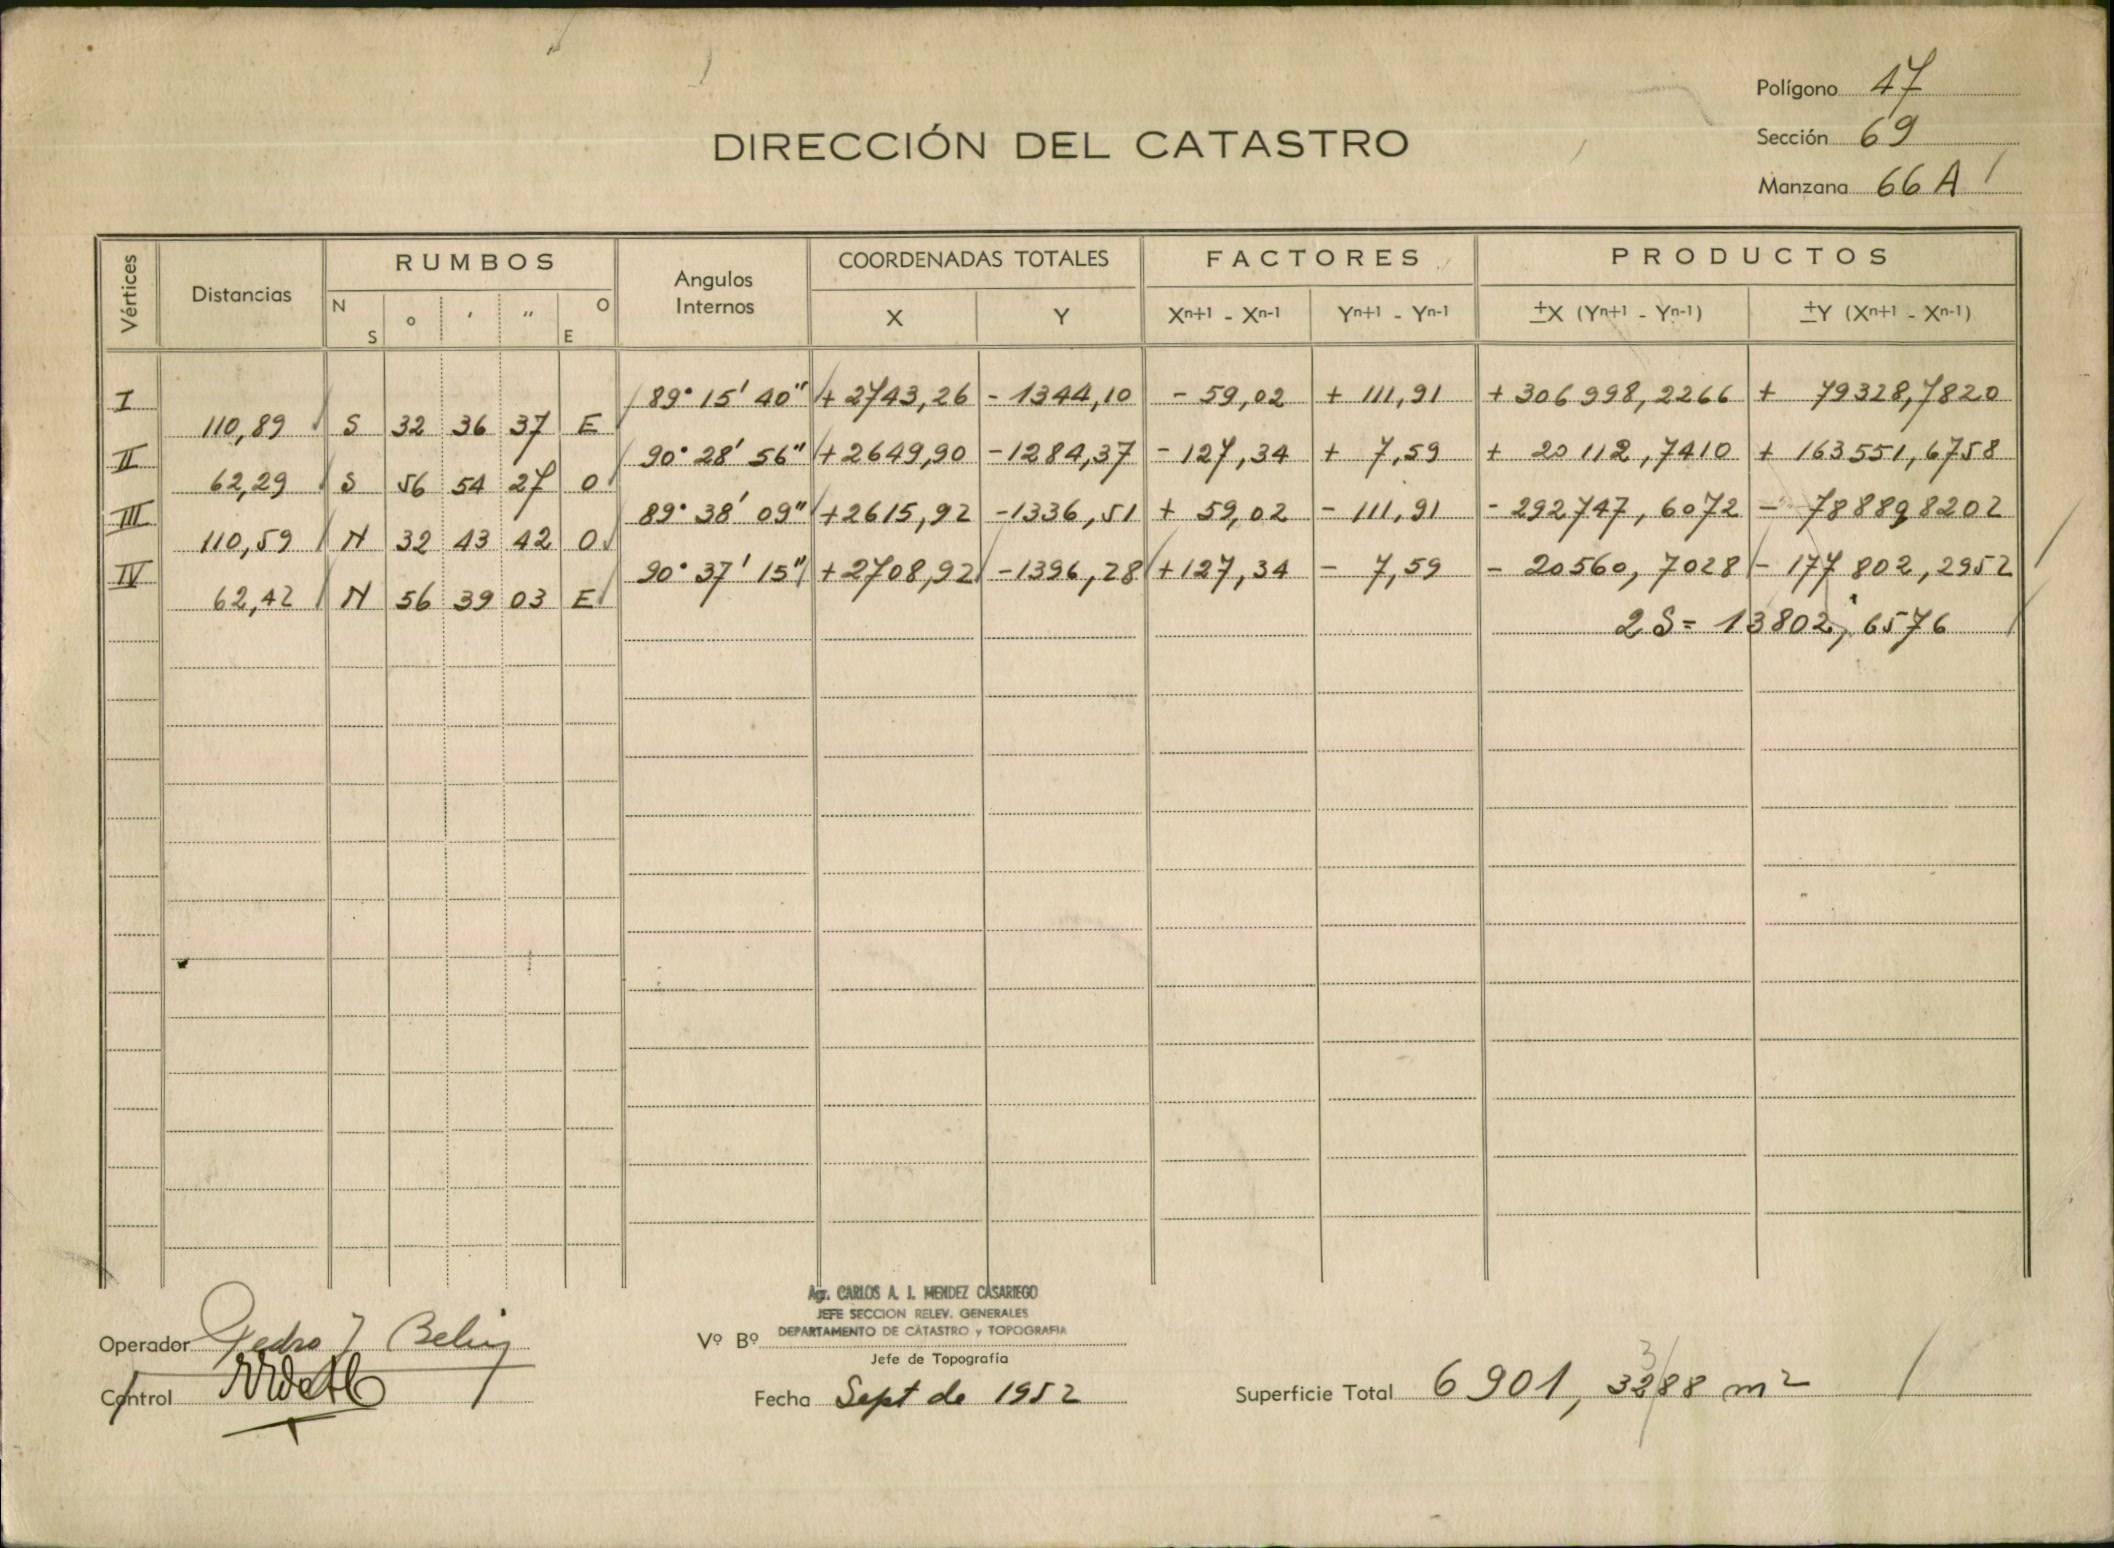 Polígono 47
DIRECCIÓN DEL CATASTRO
Sección 69
Manzana 66 A
Vértices Distancias RUMBOS N S ° ' " O E Angulos Internos COORDENADAS TOTALES X Y FACTORES Xn+1 - Xn-1 Yn+1 - Yn-1 PRODUCTOS ±X (Yn+1 - Yn-1) ±Y (Xn+1 - Xn-1)
I 89° 15' 40" +2743,26 - 1344,10 - 59,02 + 111,91 +306998,2266 + 79328,7820
110,89 S 32 36 37 E
II 90° 28' 56" +2649,90 -1284,37 -127,34 + 7,59 + 20112,7410 + 163551,6758
62,29 S 56 54 27 O
III 89° 38' 09" +2615,92 -1336,51 + 59,02 - 111,91 -292747,6072 - 788898202
110,59 N 32 43 42 O
IV 90° 37' 15" +2708,92 -1396,28 +127,34 - 7,59 - 20560,7028 - 177802,2952
62,42 N 56 39 03 E
2S = 13802,6576
Agr. CARLOS A. I. MENDEZ CASARIEGO
JEFE SECCION RELEV. GENERALES
DEPARTAMENTO DE CATASTRO y TOPOGRAFIA
Operador Pedro Vº Bº
Jefe de Topografía
Control Fecha Sept de 1952 Superficie Total 6901, 3288 m2
3